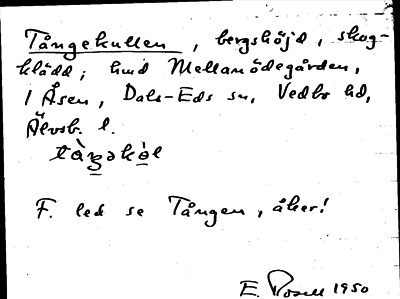 Tångekullen, bergshöjd, skog-
klädd; hmd Mellanödegården,
1 Åsen, Dals-Eds sn, Vedbo hd,
Älvsb. l.
F. led se Tången, åker!
E. Rosell 1950